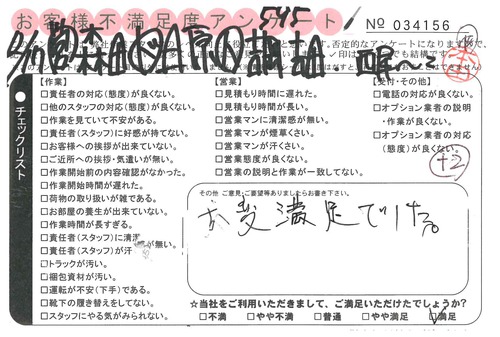 お客様不満足度アンケート
545
No 034156
チェックリスト
【作業】
□責任者の対応(態度)が良くない。
□他のスタッフの対応(態度)が良くない。
□作業を見ていて不安がある。
□責任者(スタッフ)に好感が持てない。
□お客様への挨拶が出来ていない。
□ご近所への挨拶・気遣いが無い。
□作業開始前の内容確認がなかった。
□作業開始時間が遅れた。
□荷物の取り扱いが雑である。
□お部屋の養生が出来ていない。
□作業時間が長すぎる。
□責任者(スタッフ)に清潔感が無い。
□責任者(スタッフ)が汗
□トラックが汚い。
□梱包資材が汚い。
□運転が不安(下手)である。
□靴下の履き替えをしてない。
□スタッフにやる気がみられない。
【営業】
□見積もり時間に遅れた。
□見積もり時間が長い。
□営業マンに清潔感が無い。
□営業マンが煙草くさい。
□営業マンが汗くさい。
□営業態度が良くない。
□営業の説明と作業が一致してない。
【受付・その他】
□電話の対応が良くない。
□オプション業者の説明
・作業が良くない。
□オプション業者の対応
(態度)が良くない。
その他 ご意見・ご要望等ありましたらお書き下さい。
大変満足でした。
☆当社をご利用いただきまして、ご満足いただけたでしょうか?
□不満 □やや不満 □普通 □やや満足 □満足